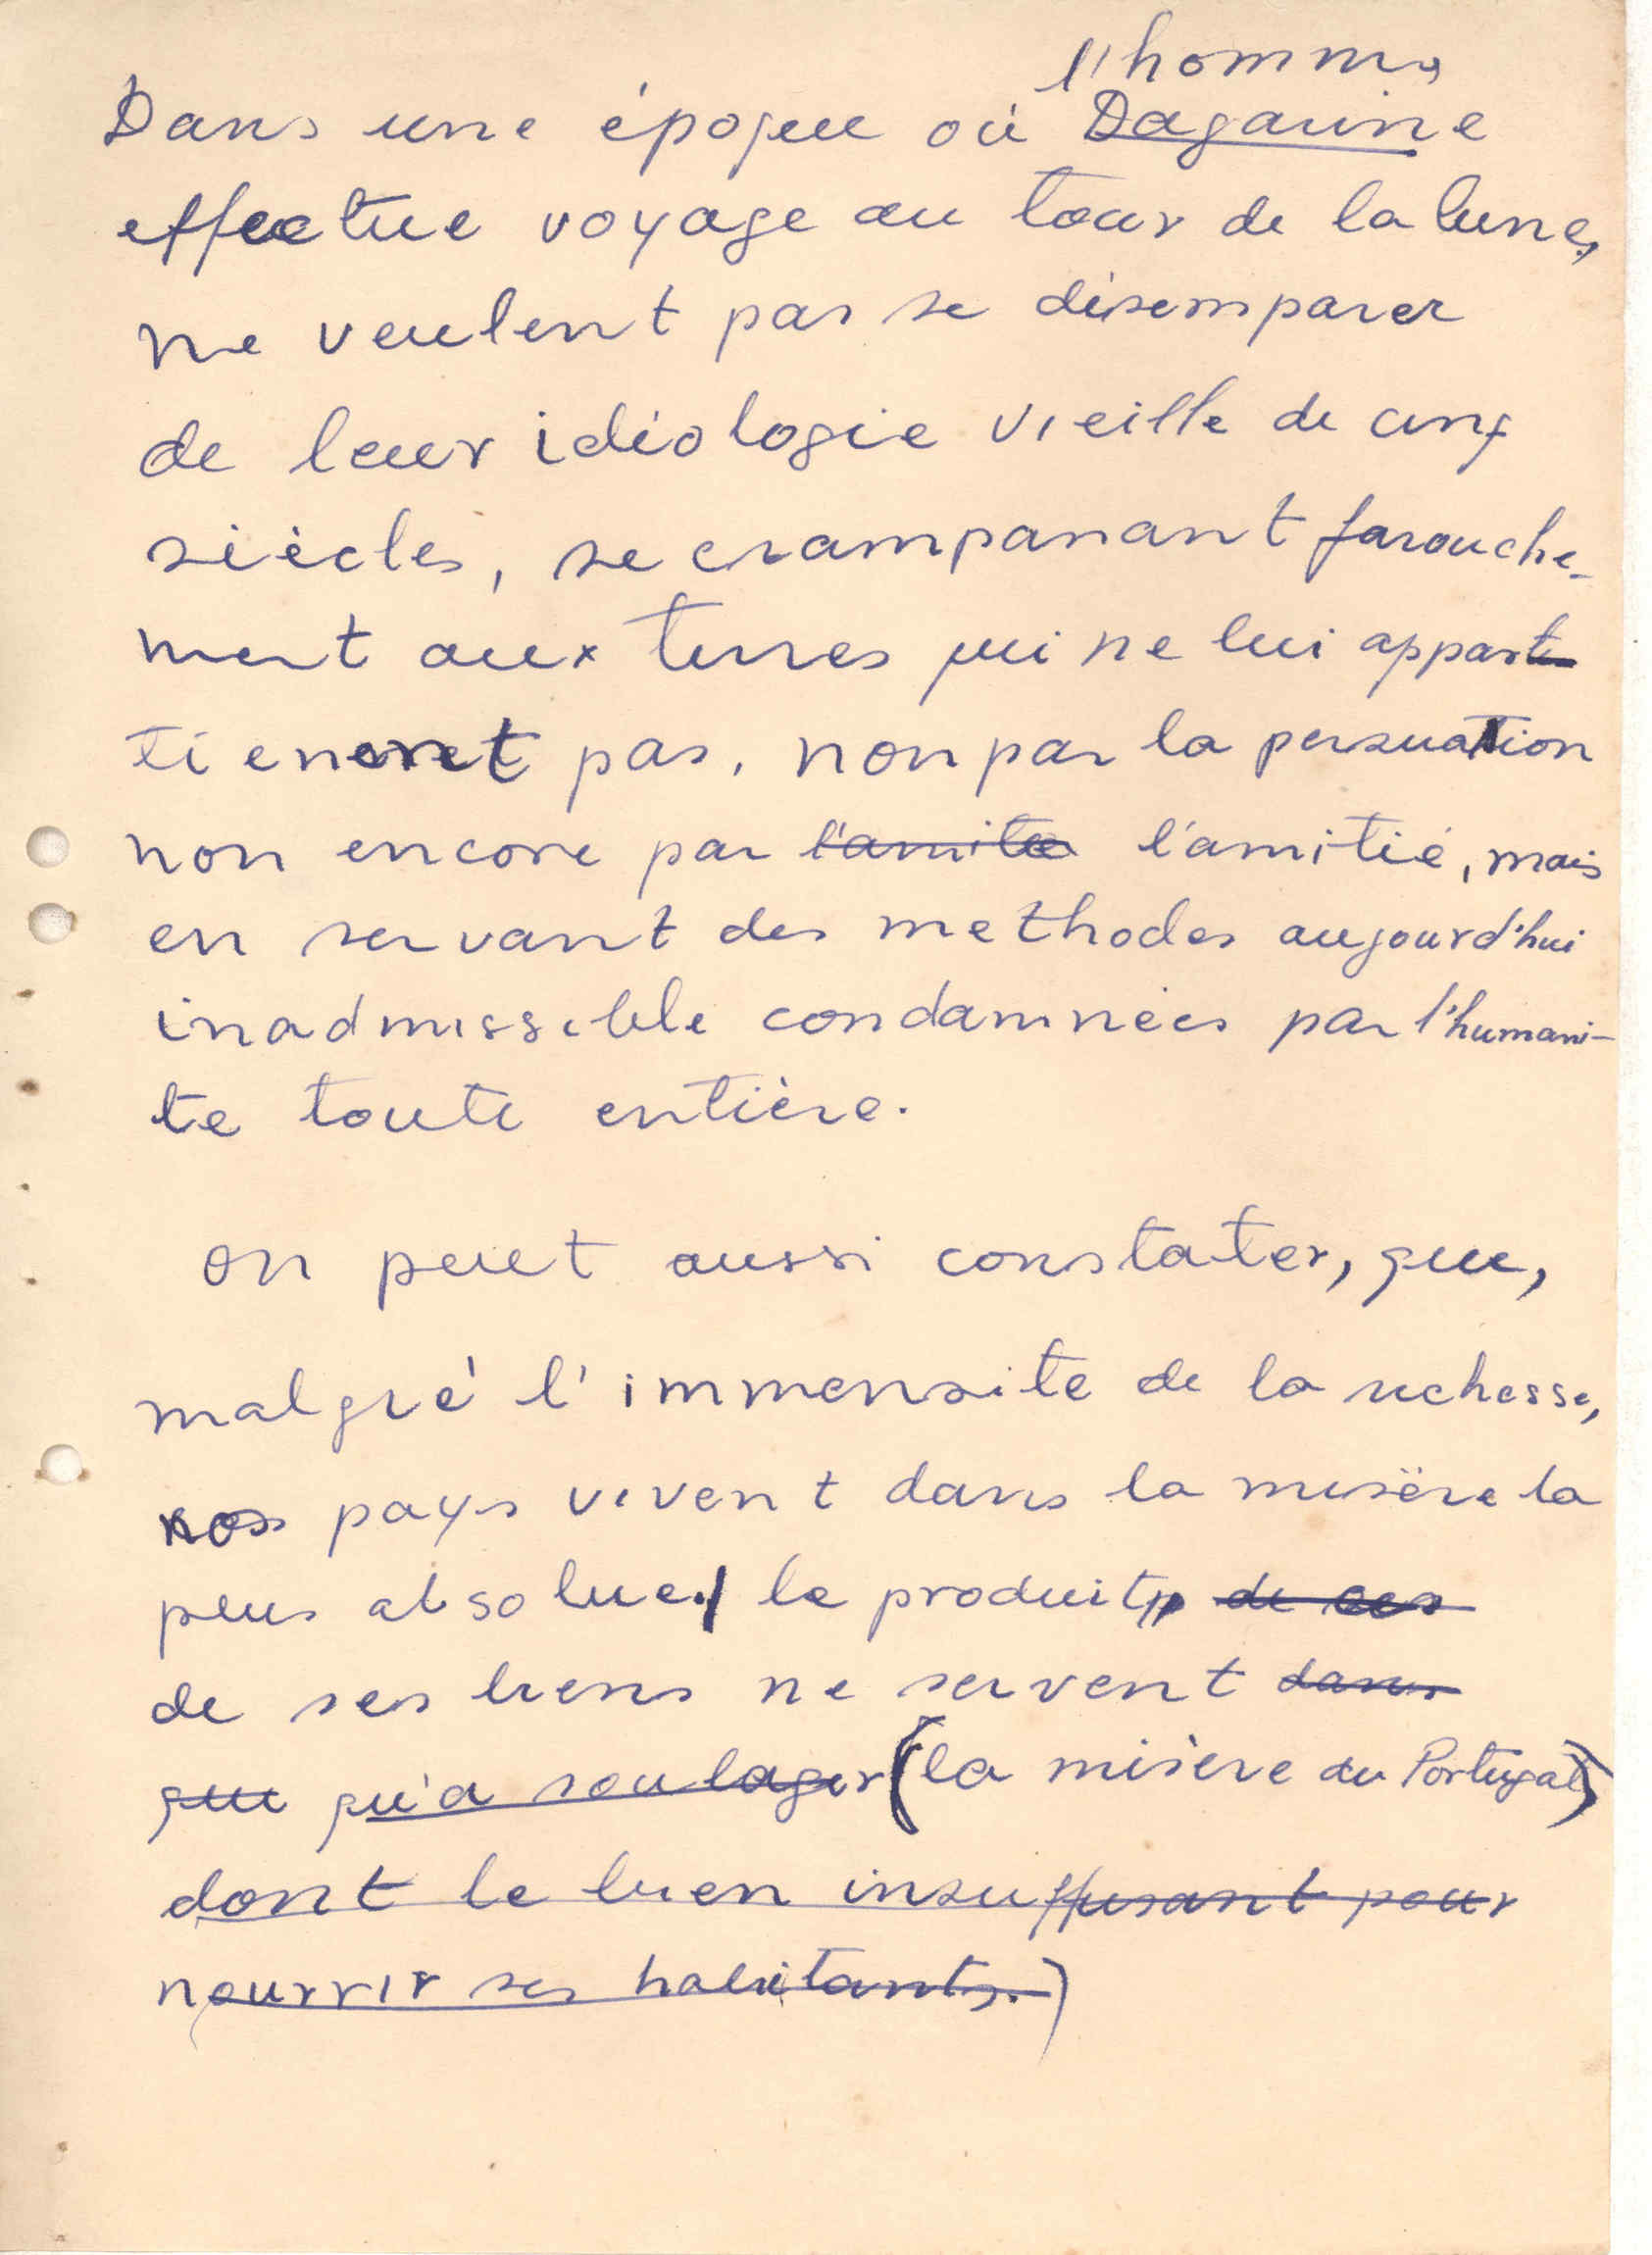 l'homme
Dans une époque où Dagarine
effectue voyage au tour de la lune,
ne veulent pas se désemparer
de leur idéologie vieille de cinq
siècles, se crampanant farouche-
ment aux terres qui ne lui appart
tienent pas, non par la persuation
non encore par l'amitie l'amitié, mais
en servant des methodes aujourd'hui
inadmissible condamnées par l'humani-
te toute entière.
on peut aussi constater, que,
malgré l'immensite de la richesse,
nos pays vivent dans la misère la
plus absolue. le produit de ces
de ses biens ne servent dans
que qu'a soulager (la misère du Portugal)
dont le bien insuffisant pour
nourrir ses habitants.)